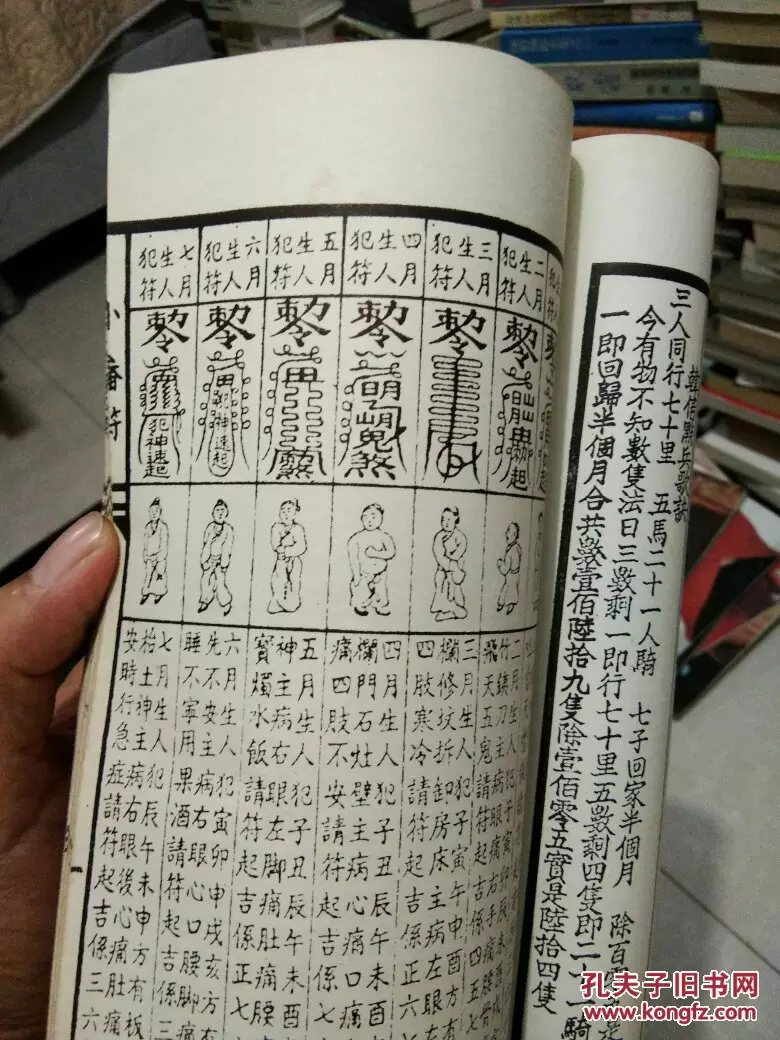 韓信點兵歌訣
三人同行七十里 五馬二十一人騎 七子回家半個月 除百
今有物不知數隻法曰三數剩一即行七十里五數剩四隻即二十一騎
一即回歸半個月合共數壹佰陸拾九隻除壹佰零五實是陸拾四隻
二月生人犯符
三月生人犯符
四月生人犯符
五月生人犯符
六月生人犯符
七月生人犯符
犯神速起
二月生人犯子寅卯辰未
竹銕刀主病眼痛右手痛腰骨
飛天五鬼請符起吉係四五七
三月生人犯子寅午申酉方有
欄修坟折卸房床主病左眼左
四肢寒冷請符起吉係四
四月生人犯子丑辰午未酉
欄門石灶壁主病心痛口痛
痛四肢不安請符起吉係七
五月生人犯子丑辰午未酉
神主病右眼左脚痛肚痛腰
寳燭水飯請符起吉係正七
六月生人犯寅卯申戌亥方有
先不安主病右眼心口腰脚痛
睡不寧用果酒請符起吉係三
七月生人犯辰午未申方有板
枱土神主病右眼後心痛肚痛
安時行急症請符起吉係三六
孔夫子旧书网
www.kongfz.com